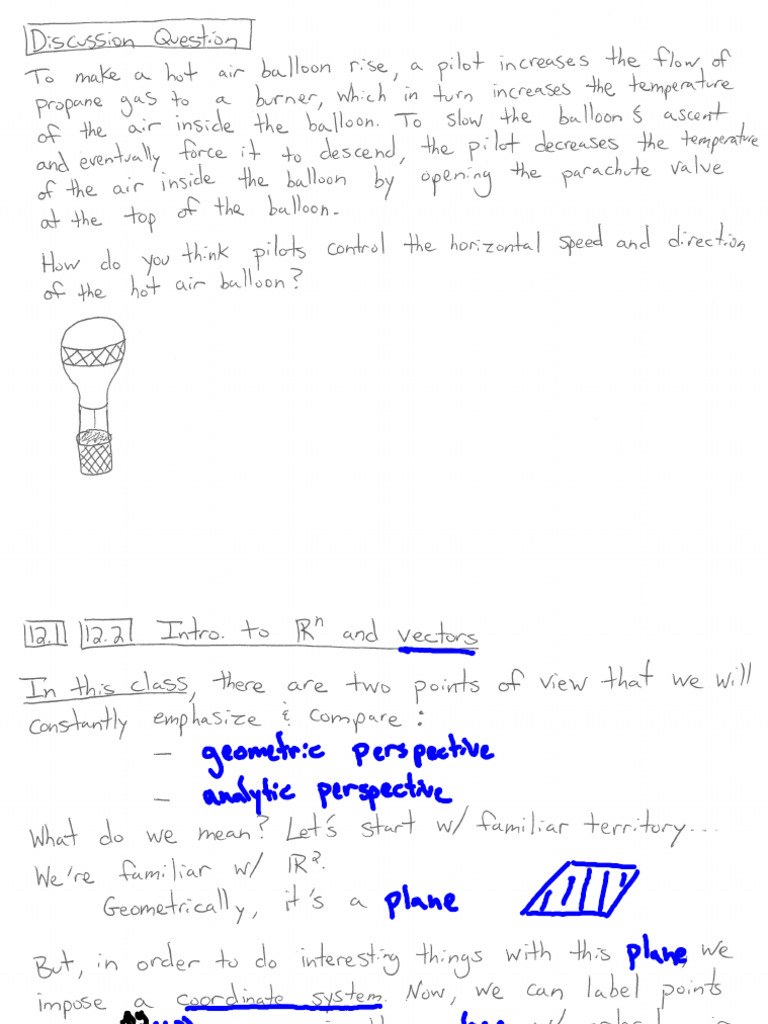 Discussion Question
To make a hot air balloon rise, a pilot increases the flow of
propane gas to a burner, which in turn increases the temperature
of the air inside the balloon. To slow the balloon's ascent
and eventually force it to descend, the pilot decreases the temperature
of the air inside the balloon by opening the parachute valve
at the top of the balloon.
How do you think pilots control the horizontal speed and direction
of the hot air balloon?
12.1 12.2 Intro. to ℝⁿ and vectors
In this class, there are two points of view that we will
constantly emphasize & compare:
- geometric perspective
- analytic perspective
What do we mean? Let's start w/ familiar territory...
We're familiar w/ ℝ².
Geometrically, it's a plane
But, in order to do interesting things with this plane, we
impose a coordinate system. Now, we can label points